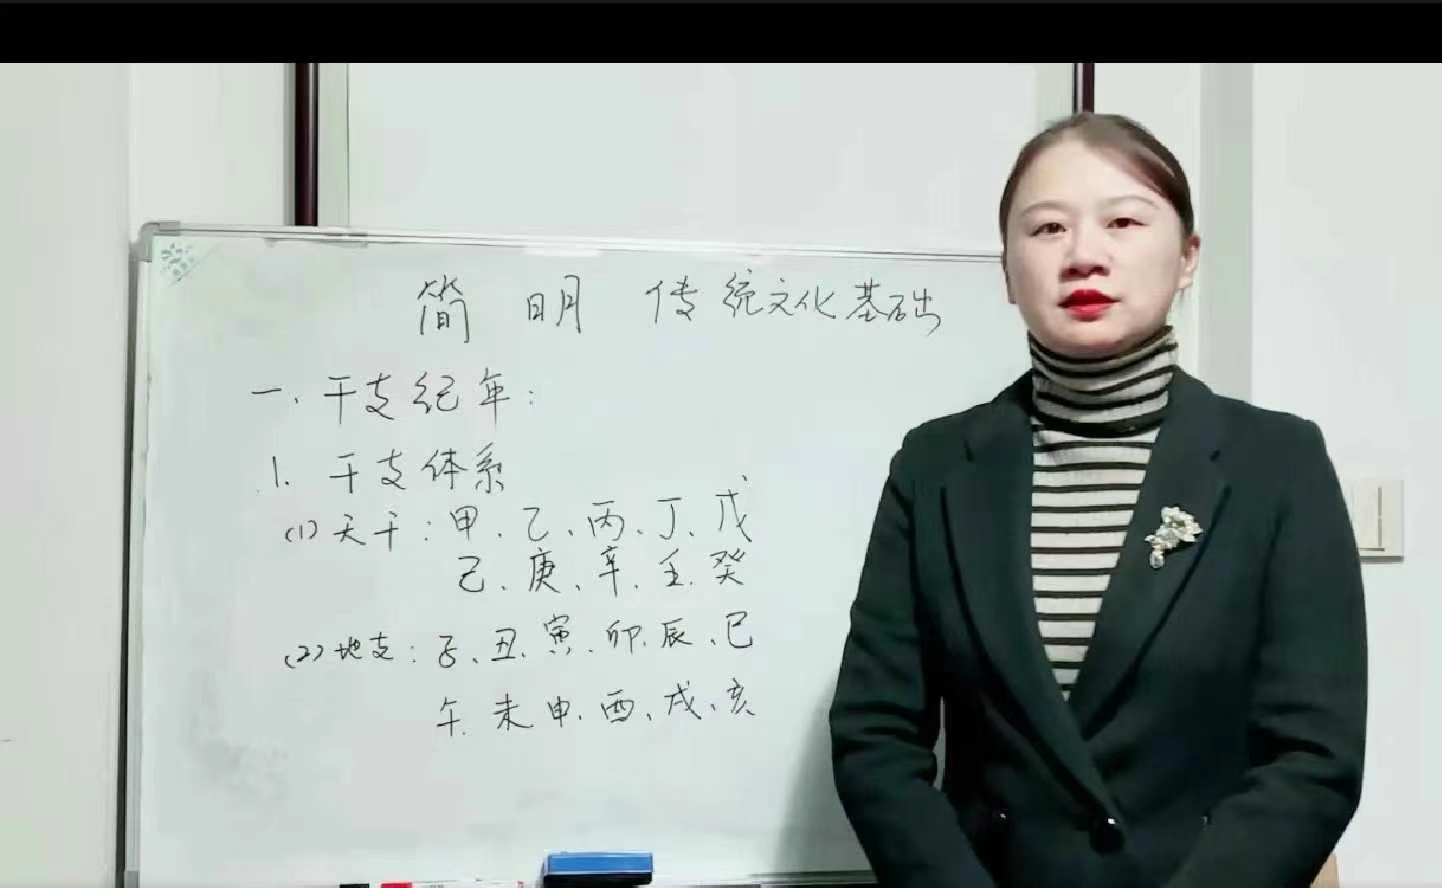 简 明 传统文化基础
一、干支纪年：
1. 干支体系
(1) 天干：甲、乙、丙、丁、戊
己、庚、辛、壬、癸
(2) 地支：子、丑、寅、卯、辰、巳
午、未、申、酉、戌、亥